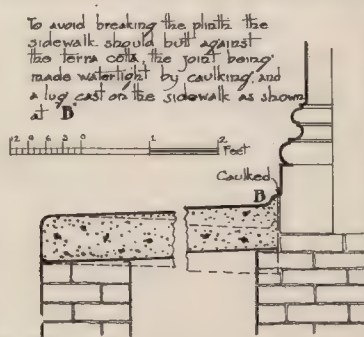 To avoid breaking the plinth the
sidewalk should butt against
the terra cotta, the joint being
made watertight by caulking, and
a lug cast on the sidewalk as shown
at "B"
12 9 6 3 0 1 2 Feet
Caulked
B